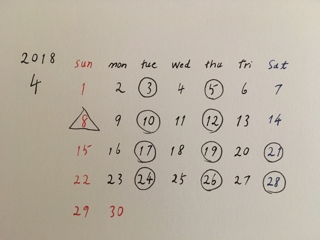 2018
4
sun mon tue wed thu fri sat
1 2 3 4 5 6 7
8 9 10 11 12 13 14
15 16 17 18 19 20 21
22 23 24 25 26 27 28
29 30